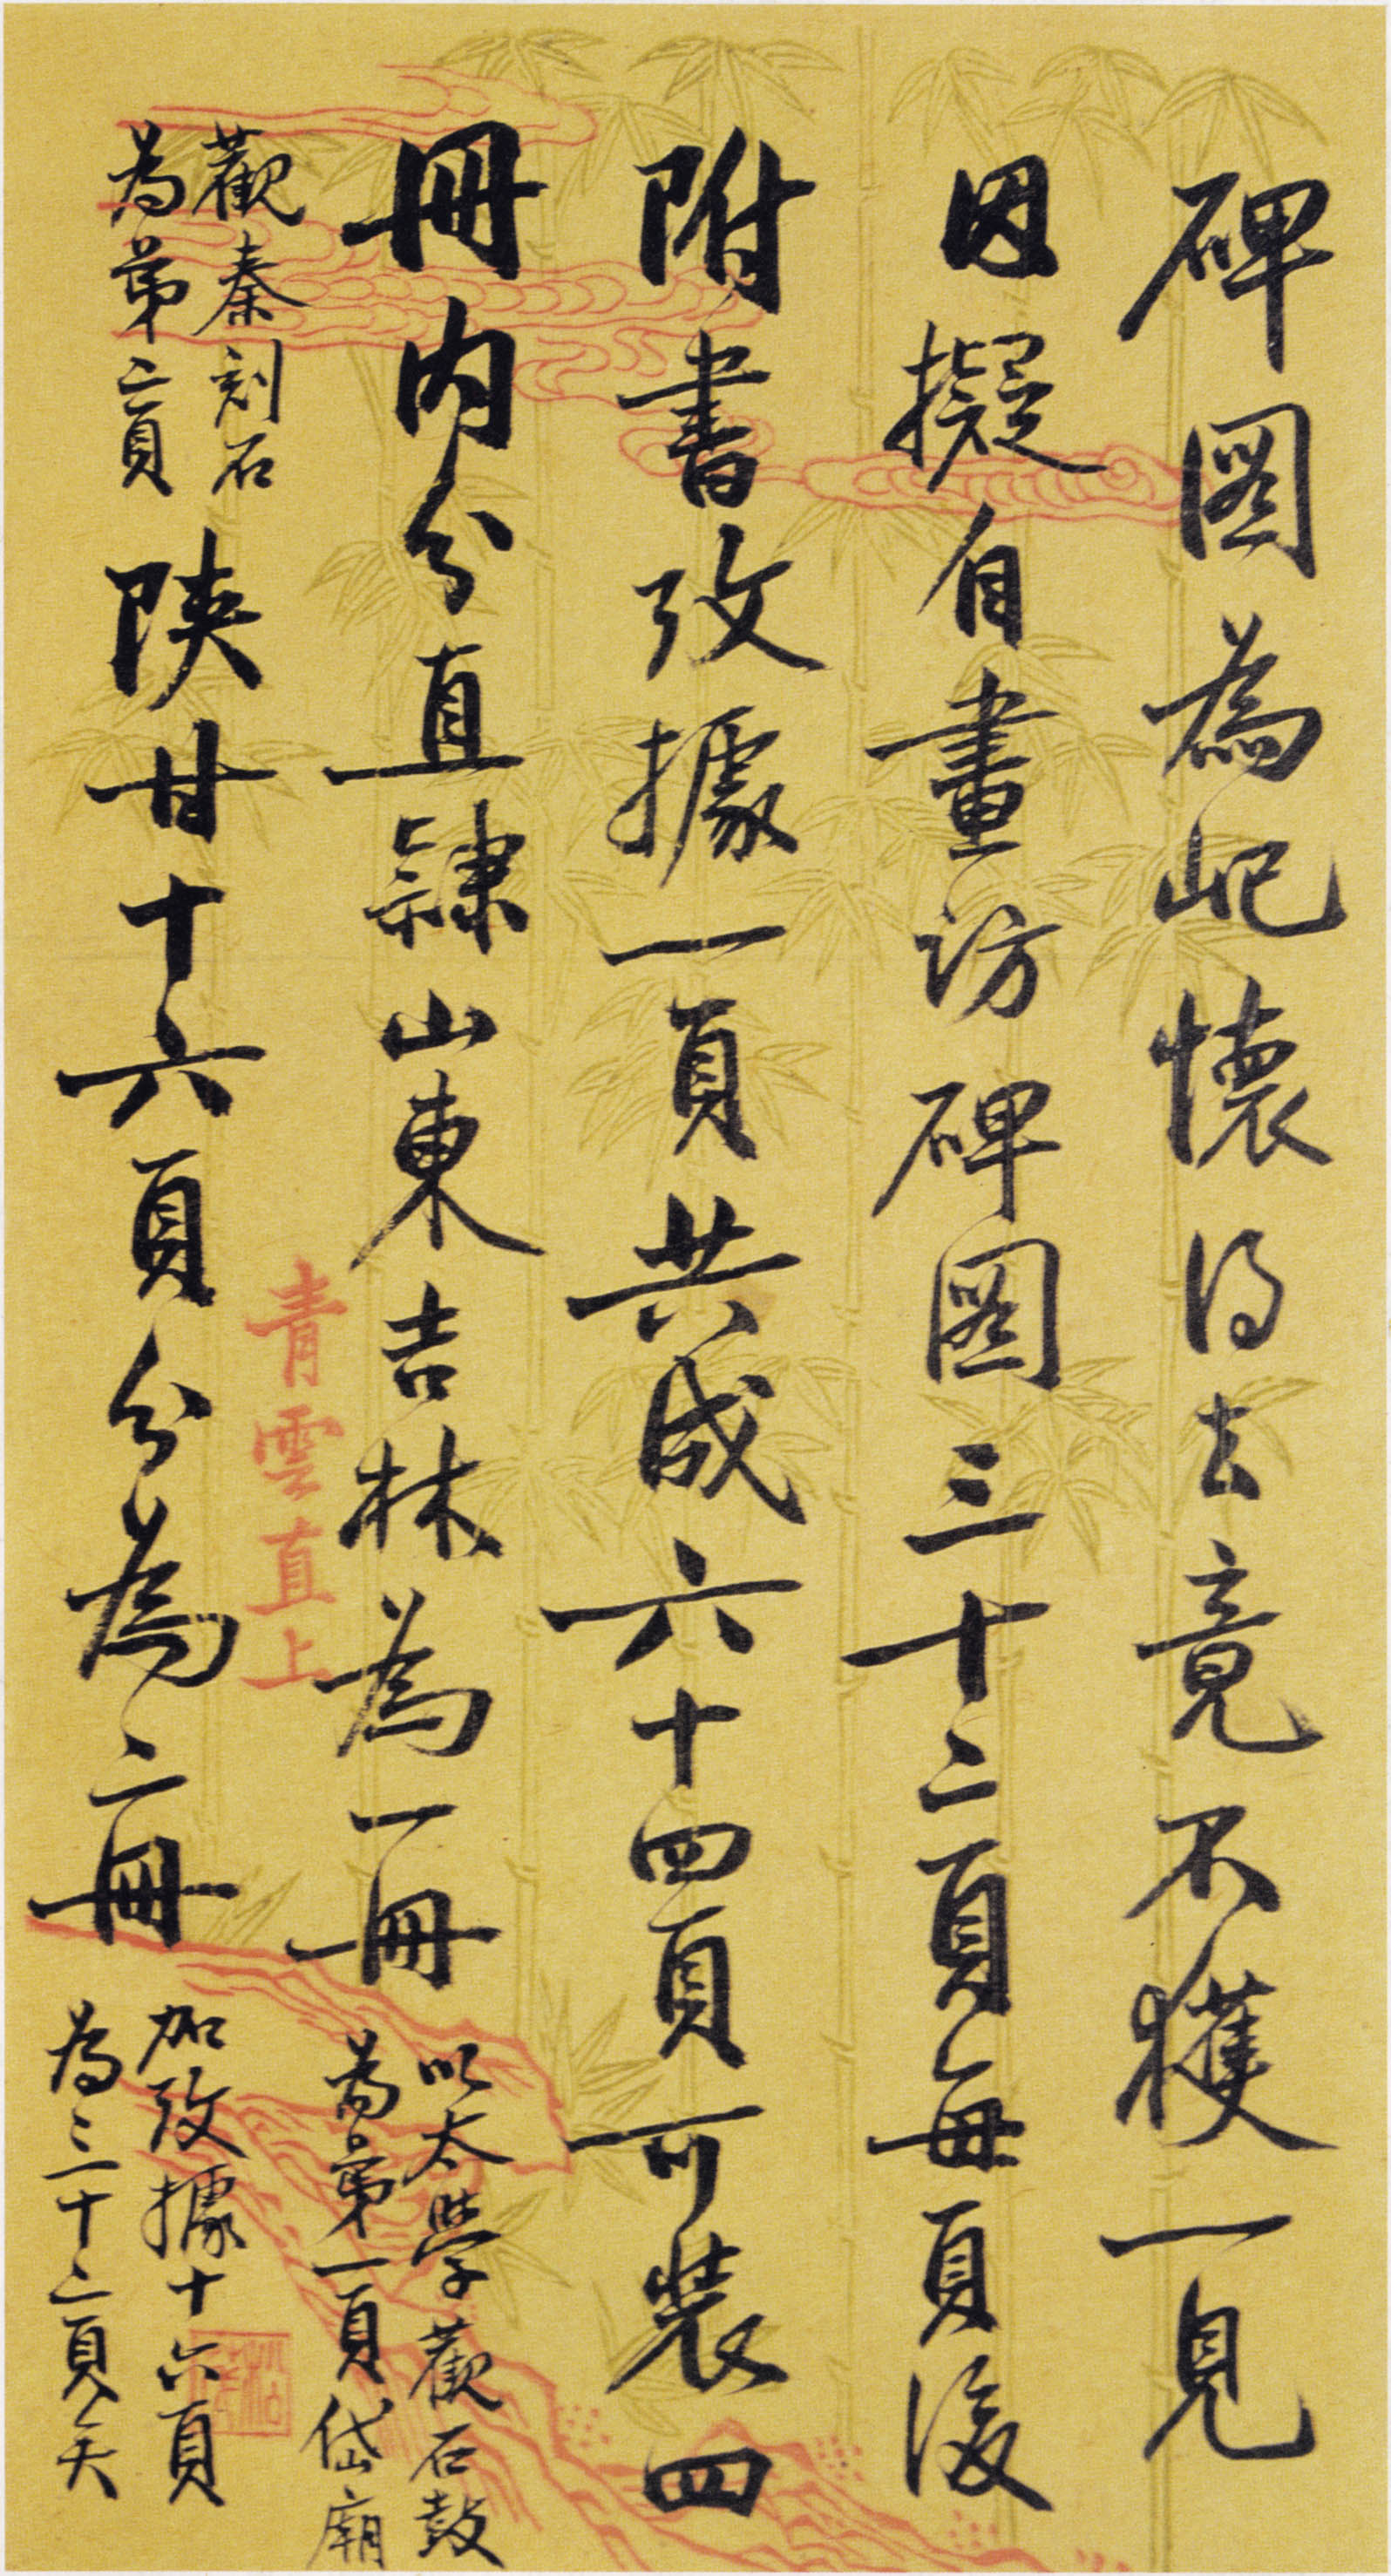 碑圖為屺懷得去竟不獲一見
因擬自畫訪碑圖三十二頁每頁後
附書攷據一頁共成六十四頁可裝四
冊內分直隸山東吉林為一冊
以太學觀石鼓
為第一頁岱廟
觀秦刻石
為第二頁
陝甘十六頁分為二冊
加攷據十六頁
為三十二頁矣
青雲直上